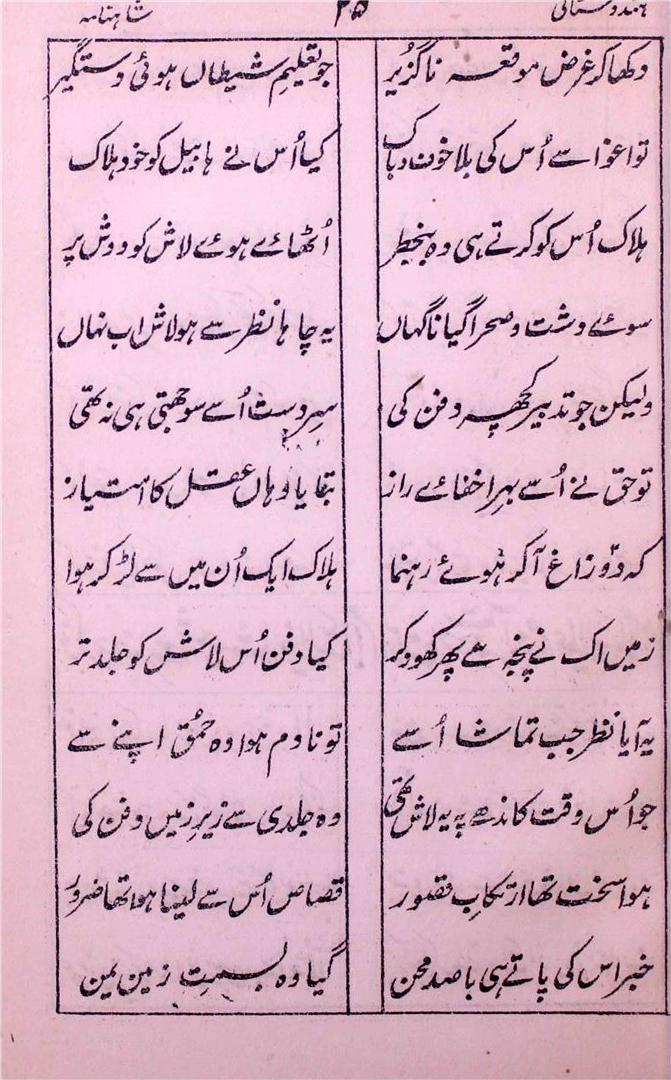 ہندوستانی ۲۵ شاہنامہ
دکھا کر غرض موقعہ ناگزیر جو تعلیمِ شیطاں ہوئی دستگیر
تو اغوا سے اُس کی بلا خوف و باک کیا اُس نے ہابیل کو خود ہلاک
ہلاک اُس کو کرتے ہی وہ بنخطر اُٹھائے ہوئے لاش کو دوش پر
سوئے دشت و صحرا گیا ناگہاں یہ چاہا نظر سے ہو لاش اب نہاں
ولیکن جو تدبیر کچھہ دفن کی سرِدست اُسے سوجھتی ہی نہ تھی
تو حق نے اُسے بہرِ اخفائے راز بتایا وہاں عقل کا امتیاز
کہ دو زاغ آکر ہُوئے رہنما ہلاک ایک اُن میں سے لڑ کر ہوا
زمیں اک نے پنجہ سے پھر کھود کر کیا دفن اُس لاش کو جلد تر
یہ آیا نظر جب تماشا اُسے تو نادم ہوا وہ حُمُق اپنے سے
جو اُس وقت کاندھے پہ یہ لاش تھی وہ جلدی سے زیرِ زمیں دفن کی
ہوا سخت تھا ارتکابِ قصور قصاص اُس سے لینا ہوا تھا ضرور
خبر اس کی پاتے ہی با صد محن گیا وہ بسمتِ زمین یمن